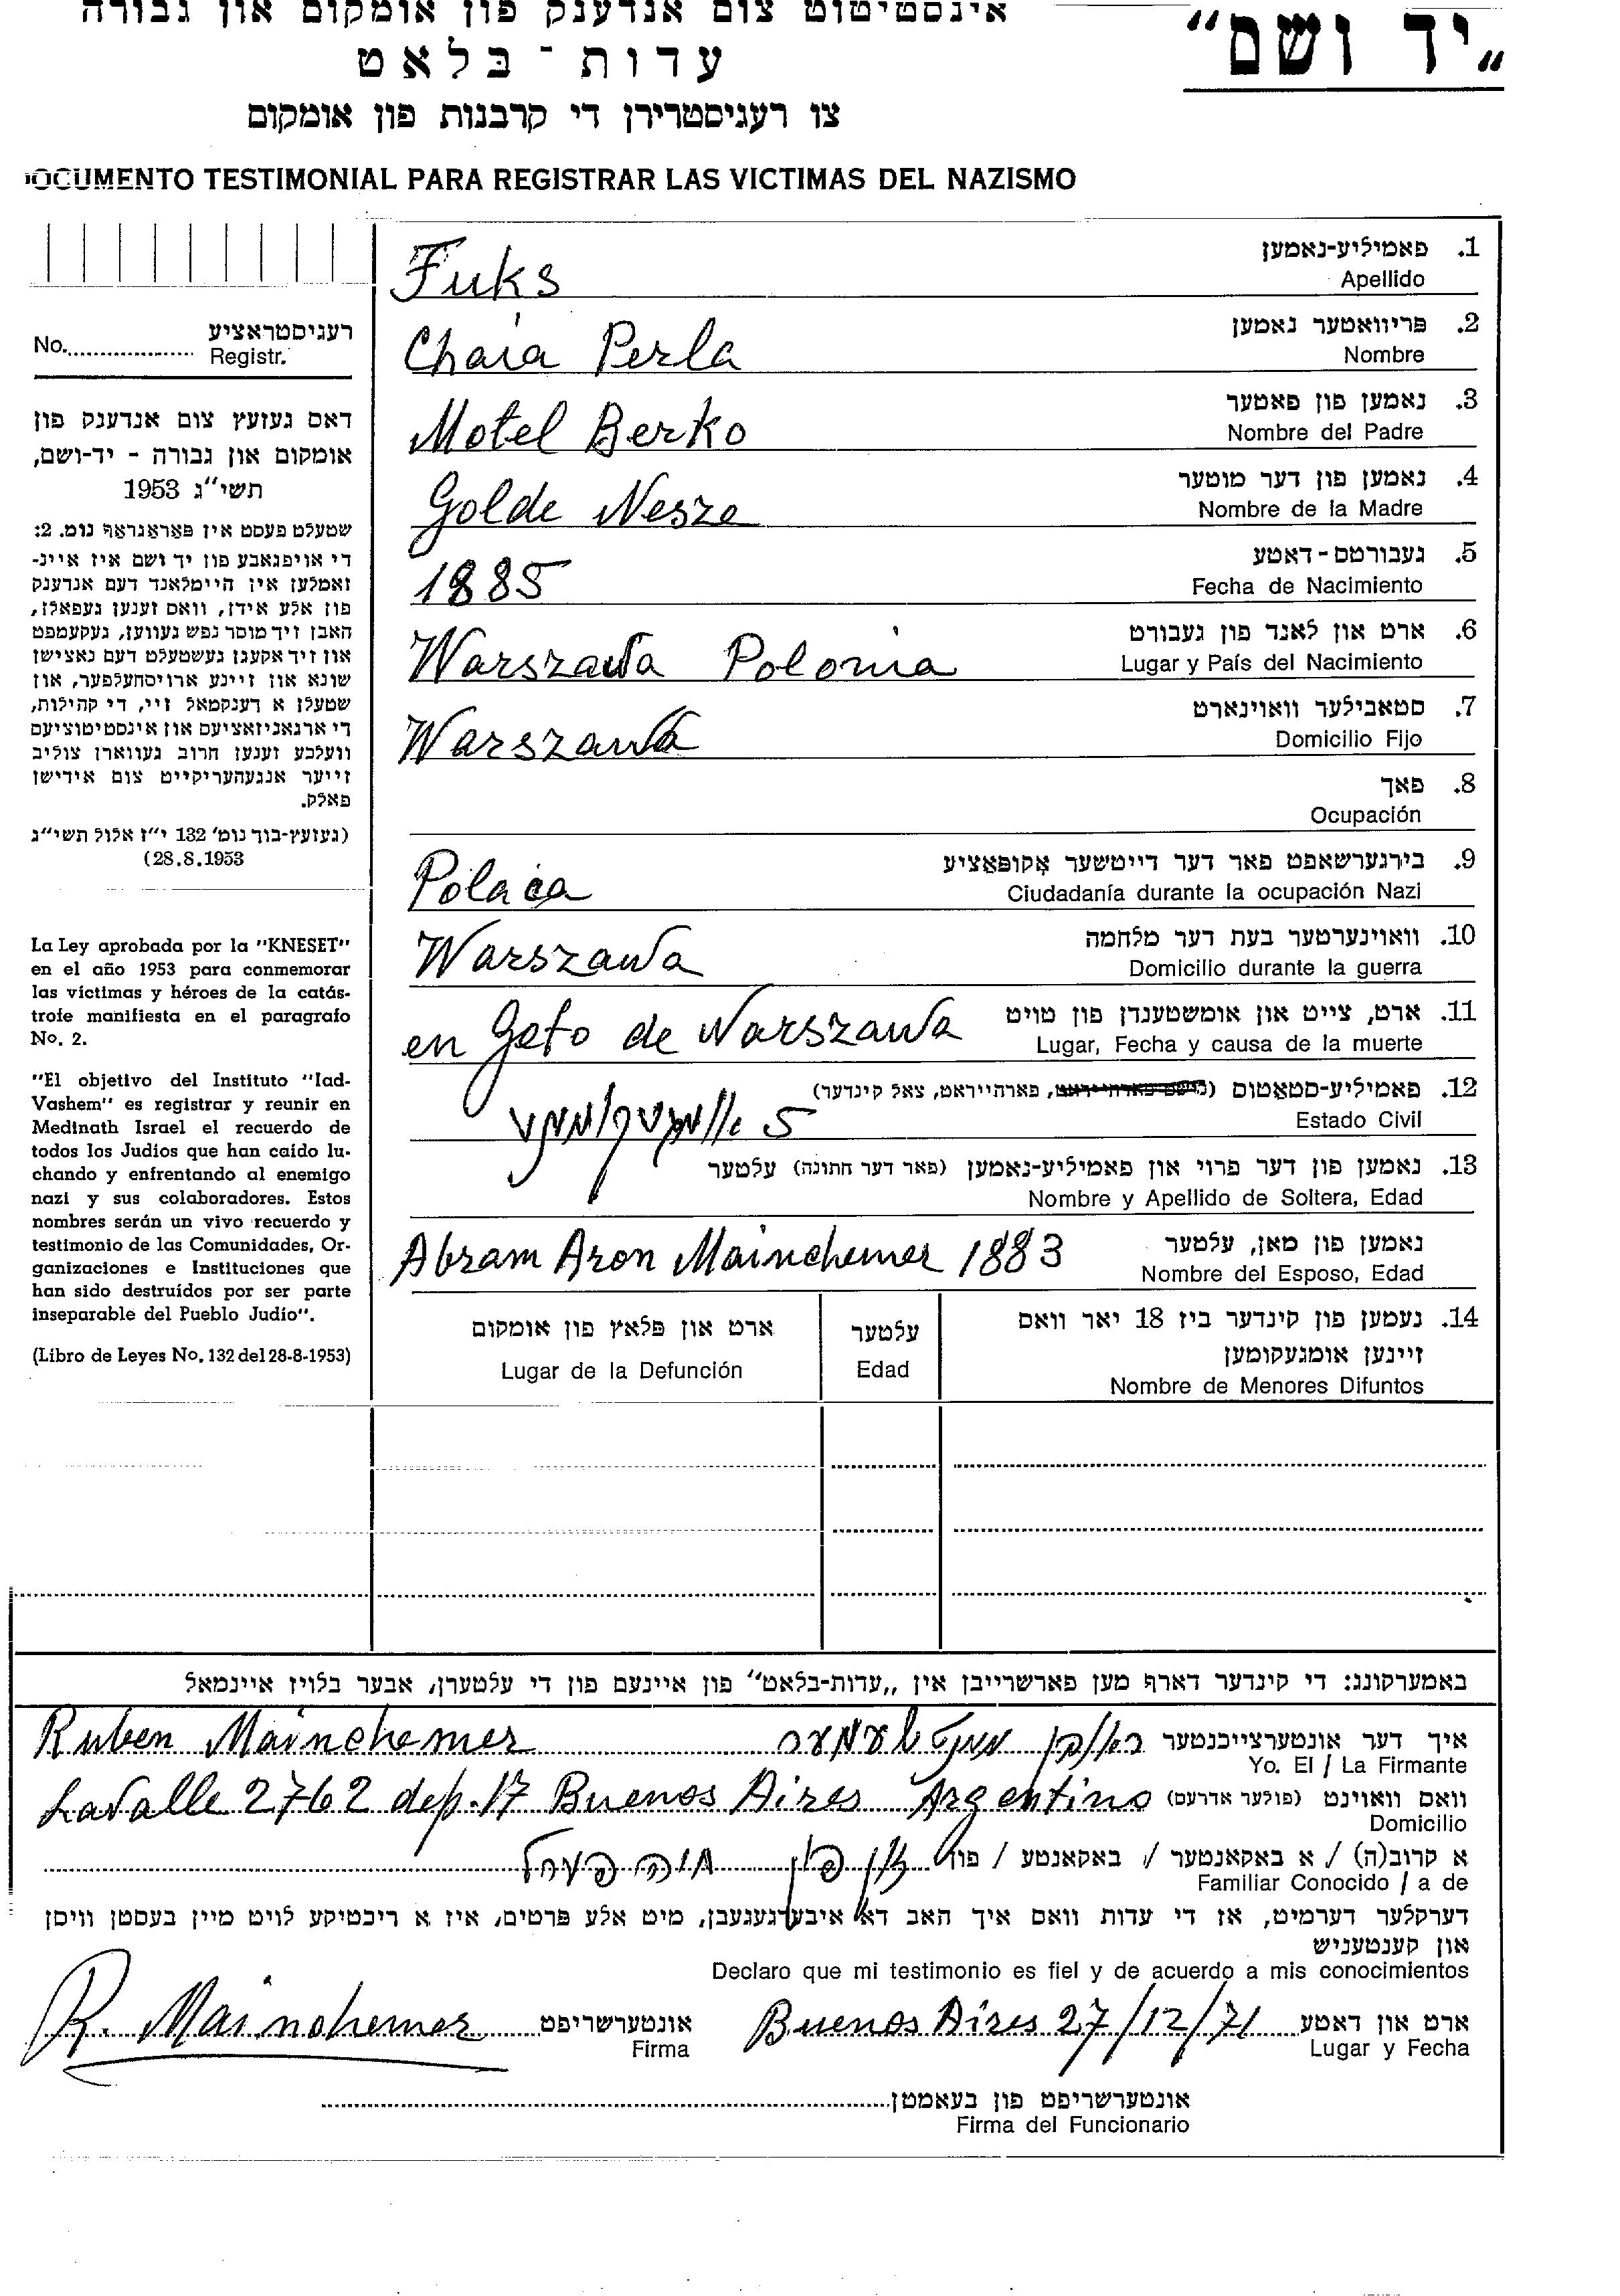 „יד ושם“
אינסטיטוט צום אנדענק פון אומקום און גבורה
עדות־בלאט
צו רעגיסטרירן די קרבנות פון אומקום
DOCUMENTO TESTIMONIAL PARA REGISTRAR LAS VICTIMAS DEL NAZISMO
רעגיסטראציע
No. Registr.
דאס געזעץ צום אנדענק פון
אומקום און גבורה - יד-ושם,
תשי״ג 1953
שטעלט פעסט אין פאראגראף נומ. 2:
די אויפגאבע פון יד ושם איז איינ-
זאמלען אין היימלאנד דעם אנדענק
פון אלע אידן, וואס זענען געפאלן,
האבן זיך מוסר נפש געווען, געקעמפט
און זיך אקעגן געשטעלט דעם נאצישן
שונא און זיינע ארויסהעלפער, און
שטעלן א דענקמאל זיי, די קהילות,
די ארגאניזאציעס און אינסטיטוציעס
וועלכע זענען חרוב געווארן צוליב
זייער אנגעהעריקייט צום אידישן
פאלק.
(געזעץ-בוך נומ׳ 132 י״ז אלול תשי״ג
28.8.1953)
La Ley aprobada por la "KNESET"
en el año 1953 para conmemorar
las víctimas y héroes de la catás-
trofe manifiesta en el paragrafo
No. 2.
"El objetivo del Instituto "Iad-
Vashem" es registrar y reunir en
Medinath Israel el recuerdo de
todos los Judíos que han caído lu-
chando y enfrentando al enemigo
nazi y sus colaboradores. Estos
nombres serán un vivo recuerdo y
testimonio de las Comunidades, Or-
ganizaciones e Instituciones que
han sido destruídos por ser parte
inseparable del Pueblo Judío".
(Libro de Leyes No. 132 del 28-8-1953)
1. פאמיליע-נאמען
Fuks Apellido
2. פריוואטער נאמען
Chaia Perla Nombre
3. נאמען פון פאטער
Motel Berko Nombre del Padre
4. נאמען פון דער מוטער
Golde Nesze Nombre de la Madre
5. געבורטס-דאטע
1885 Fecha de Nacimiento
6. ארט און לאנד פון געבורט
Warszawa Polonia Lugar y País del Nacimiento
7. סטאבילער וואוינארט
Warszawa Domicilio Fijo
8. פאך
Ocupación
9. בירגערשאפט פאר דער דייטשער אקופאציע
Polaca Ciudadanía durante la ocupación Nazi
10. וואוינערטער בעת דער מלחמה
Warszawa Domicilio durante la guerra
11. ארט, צייט און אומשטענדן פון טויט
en Geto de Warszawa Lugar, Fecha y causa de la muerte
12. פאמיליע-סטאטוס (נישט פארהייראט, פארהייראט, צאל קינדער)
5 Estado Civil
13. נאמען פון דער פרוי און פאמיליע-נאמען (פאר דער חתונה) עלטער
Nombre y Apellido de Soltera, Edad
נאמען פון מאן, עלטער
Abram Aron Mainchemer 1883 Nombre del Esposo, Edad
14. נעמען פון קינדער ביז 18 יאר וואס
זיינען אומגעקומען
Nombre de Menores Difuntos
עלטער
Edad
ארט און פלאץ פון אומקום
Lugar de la Defunción
באמערקונג: די קינדער דארף מען פארשרייבן אין „עדות-בלאט“ פון איינעם פון די עלטערן, אבער בלויז איינמאל
איך דער אונטערצייכנטער ראובן מיינכעמער Ruben Mainchemer
Yo. El / La Firmante
וואס וואוינט (פולער אדרעס) Lavalle 2762 dep. 17 Buenos Aires Argentina
Domicilio
א קרוב(ה) / א באקאנטער / באקאנטע / פון זון פון חיה פערל
Familiar Conocido / a de
דערקלער דערמיט, אז די עדות וואס איך האב דא איבערגעגעבן, מיט אלע פרטים, איז א ריכטיקע לויט מיין בעסטן וויסן
און קענטעניש
Declaro que mi testimonio es fiel y de acuerdo a mis conocimientos
ארט און דאטע Buenos Aires 27/12/71 אונטערשריפט R. Mainchemer
Lugar y Fecha Firma
אונטערשריפט פון בעאמטן
Firma del Funcionario